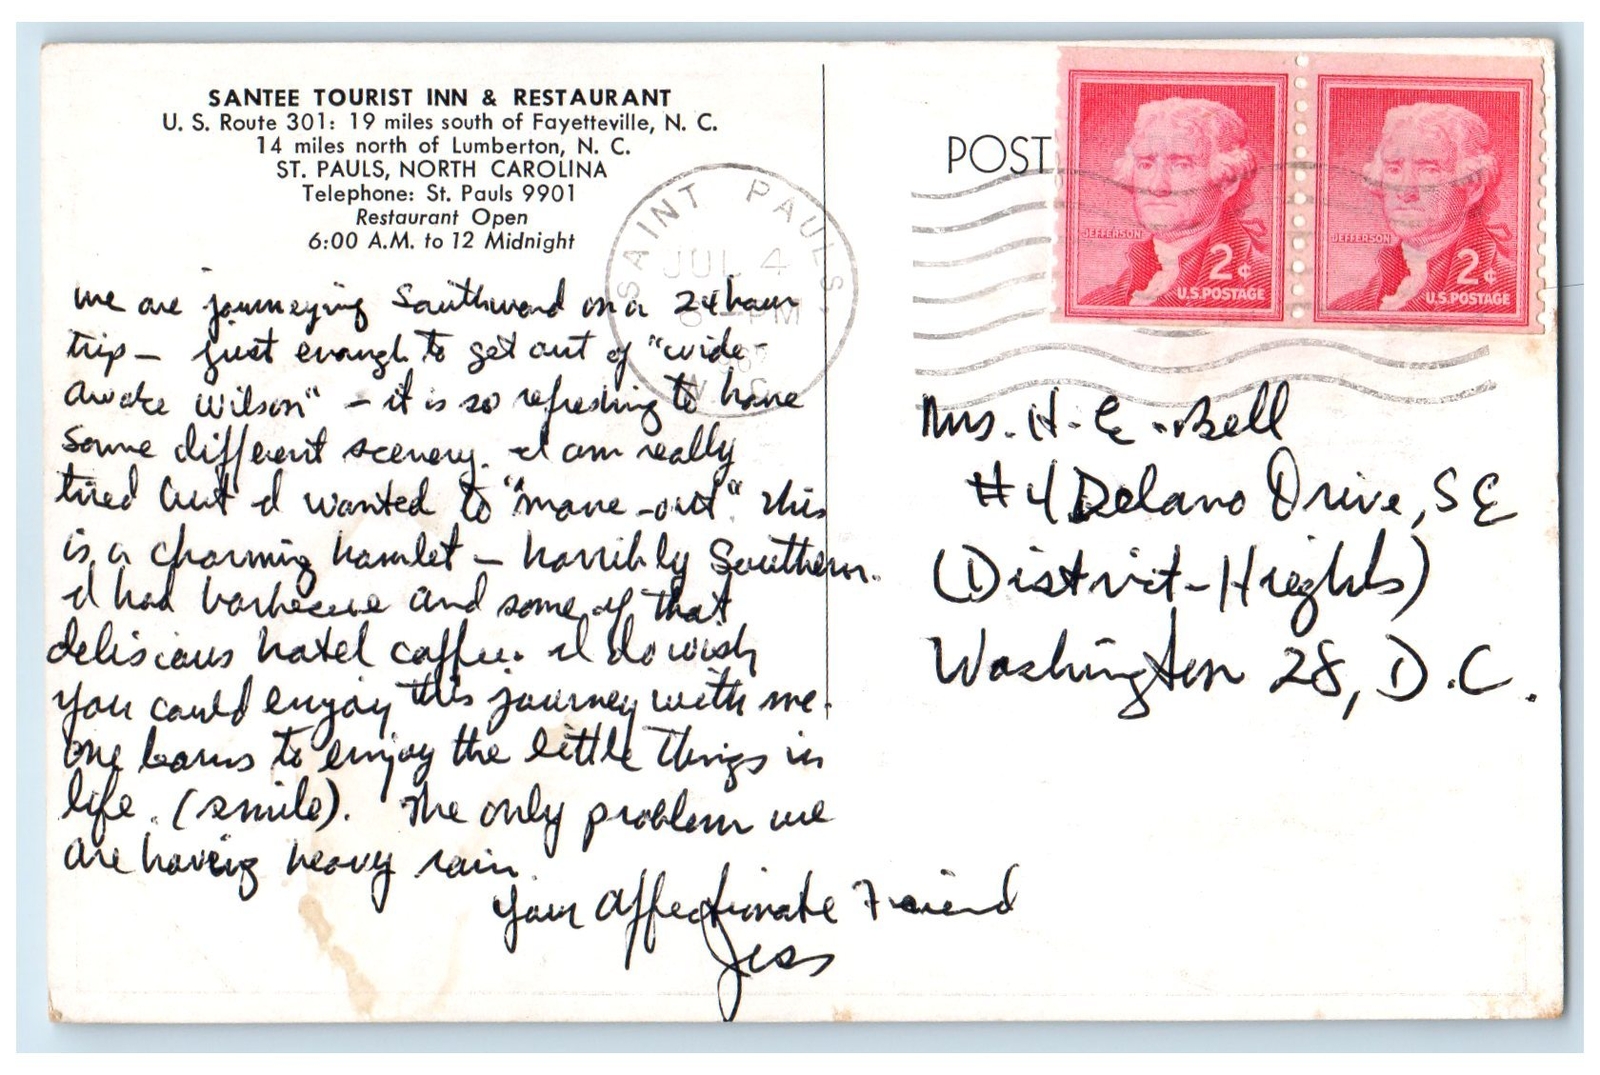 SANTEE TOURIST INN & RESTAURANT
U. S. Route 301: 19 miles south of Fayetteville, N. C.
14 miles north of Lumberton, N. C.
ST. PAULS, NORTH CAROLINA
Telephone: St. Pauls 9901
Restaurant Open
6:00 A.M. to 12 Midnight
We are journeying Southward on a 24 hour
trip — just enough to get out of "wide-
awake Wilson" — it is so refreshing to have
some different scenery. I am really
tired but I wanted to "move-out". This
is a charming hamlet — horribly Southern.
I had barbecue and some of that
delicious hotel coffee. I do wish
you could enjoy this journey with me.
One learns to enjoy the little things in
life. (smile). The only problem we
are having heavy rain.
Your Affectionate Friend
Jess
SAINT PAULS,
JUL 4
6 PM
N. C.
POST
JEFFERSON
2¢
U.S.POSTAGE
JEFFERSON
2¢
U.S.POSTAGE
Mrs. H. E. Bell
#4 Delano Drive, SE
(District-Heights)
Washington 28, D.C.